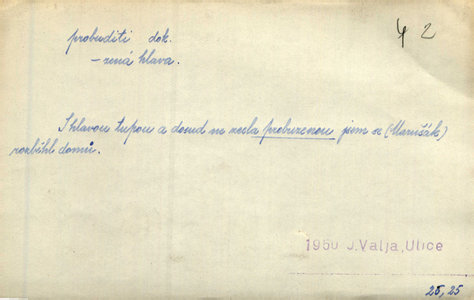 probuditi dok.
– zená hlava.
42
S hlavou tupou a dosud ne zcela probuzenou jsem se (Marušák)
rozběhl domů.
1950 J.Valja, Ulice
25, 25